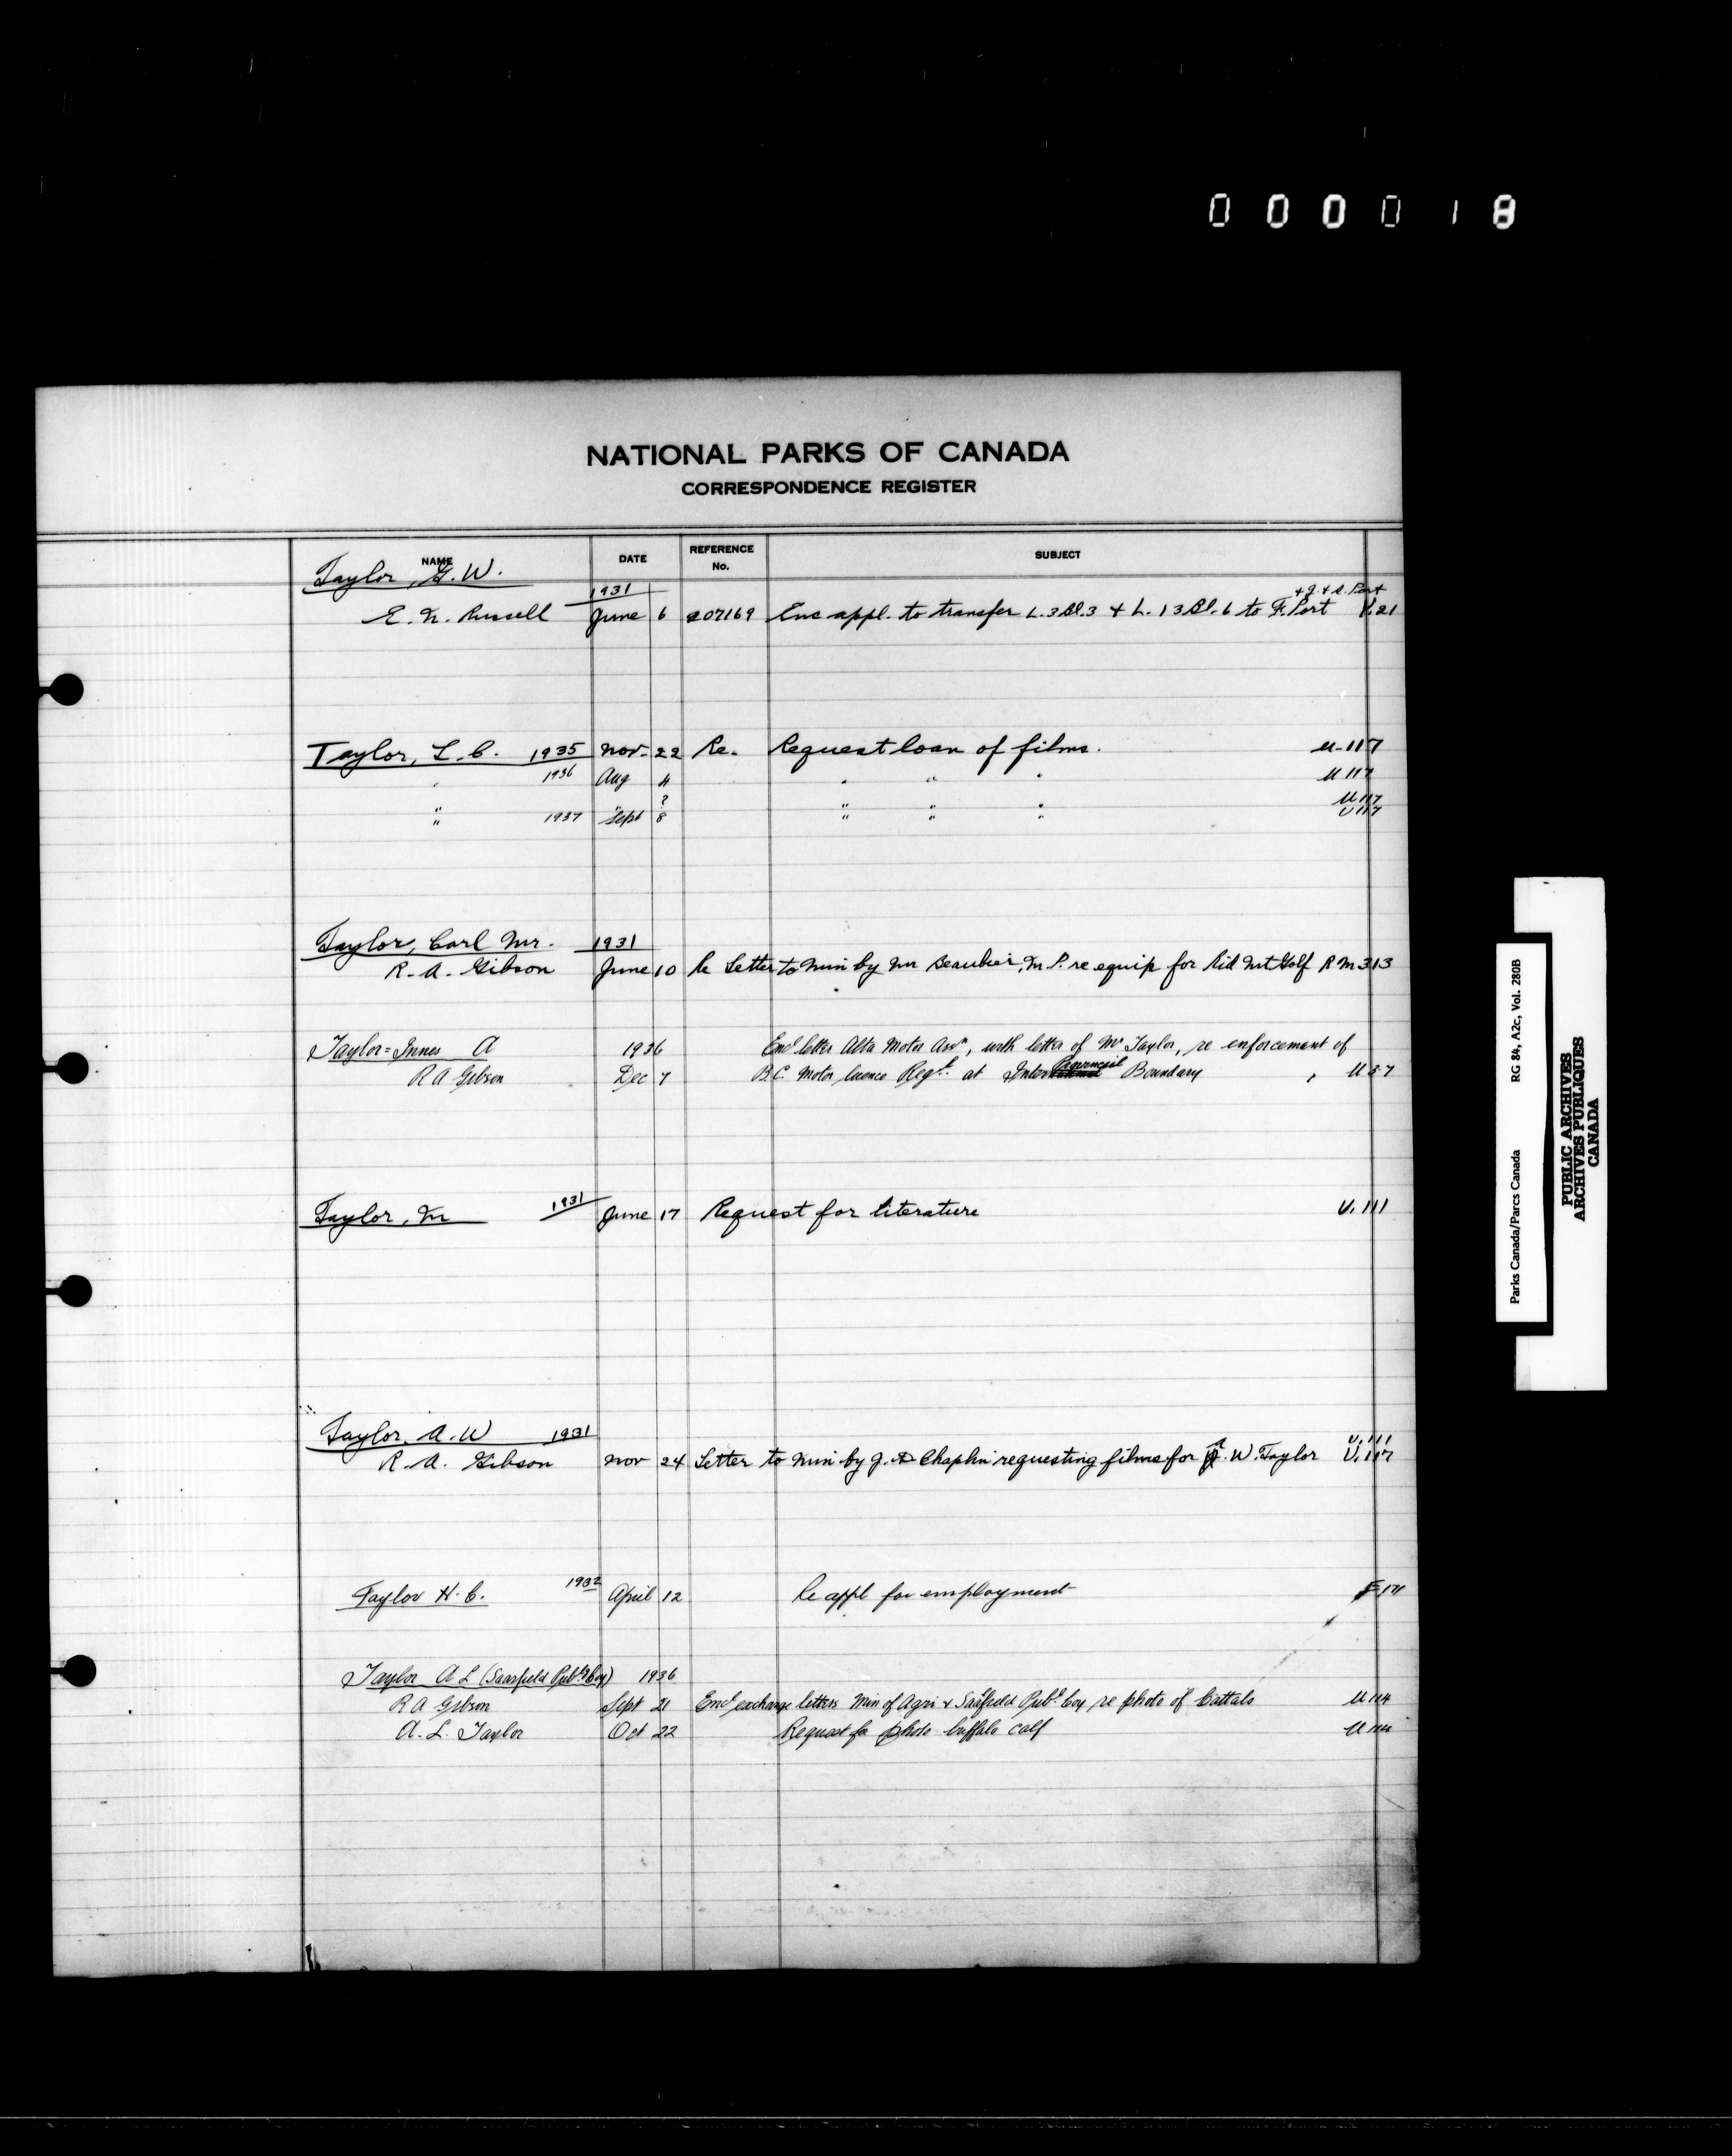 000018
NATIONAL PARKS OF CANADA
CORRESPONDENCE REGISTER
NAME DATE REFERENCE No. SUBJECT
Taylor, G. W.
1931 + J. + A. Port
E. N. Russell June 6 207169 Enc appl. to transfer L. 3 Bl. 3 + L. 13 Bl. 6 to F. Port V. 21
Taylor, L. C. 1935 Nov. 22 Re. Request loan of films. U-117
" 1936 Aug 4 " " " U 117
" " ? " " " U 117
" 1937 Sept 8 " " " U 117
Taylor, Carl Mr. 1931
R. A. Gibson June 10 Re Letter to Min by Mr Beaubier, M.P. re equip for Rid Mt Golf R M 313
Taylor=Innes A 1936 Encl letter Alta Motor Assn, with letter of Mr Taylor, re enforcement of
R A Gibson Dec 7 B.C. Motor licence Regts. at Inter Provincial Boundary, U 37
Taylor, M 1931 June 17 Request for literature U. 111
Taylor, A. W 1931 U. 111
R. A. Gibson Nov 24 Letter to Min by J. D Chaplin requesting films for A. W. Taylor U. 117
Taylor H. C. 1932 April 12 Re appl for employment
Taylor A L (Saalfield Publg Coy) 1936
R A Gibson Sept 21 Encl exchange letters Min of Agri + Saalfield Publg Coy re photo of Cattalo
A. L. Taylor Oct 22 Request for photo buffalo calf
Parks Canada/Parcs Canada RG 84, A2c, Vol. 280B
PUBLIC ARCHIVES
ARCHIVES PUBLIQUES
CANADA